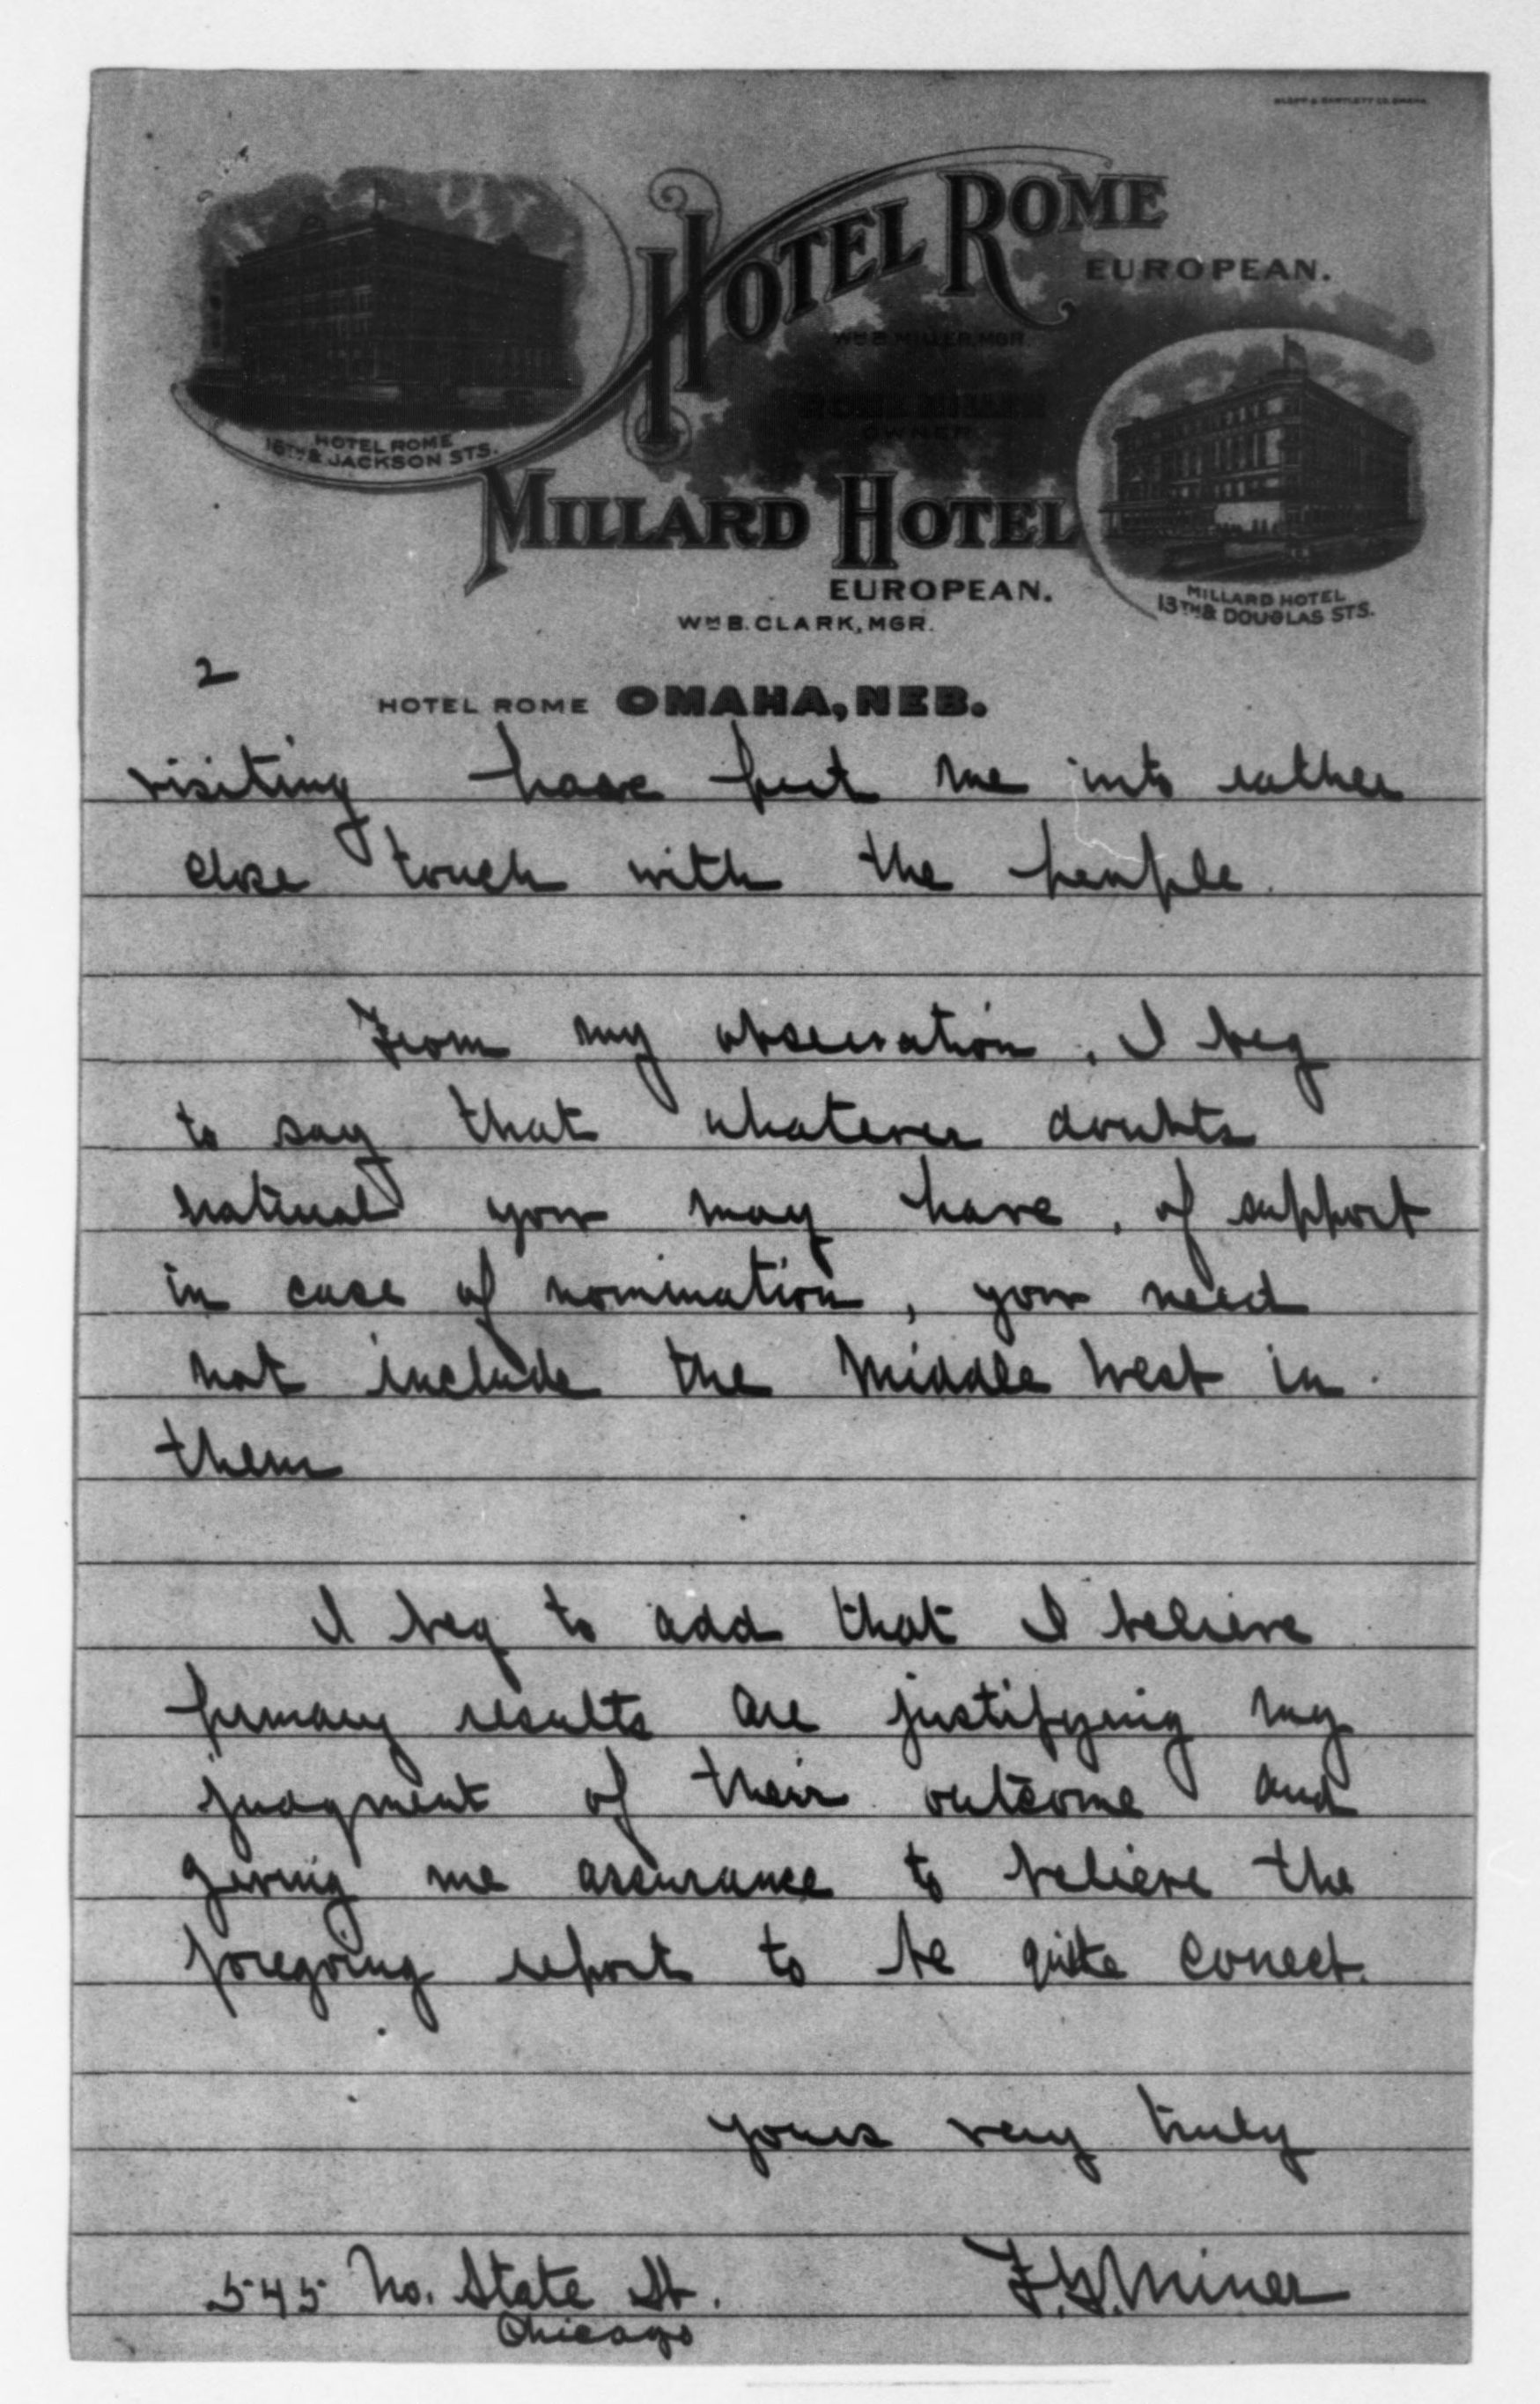 HOTEL ROME
EUROPEAN.
WM B. MILLER, MGR.
ROME MILLER
OWNER
HOTEL ROME
16TH & JACKSON STS.
MILLARD HOTEL
EUROPEAN.
WM B. CLARK, MGR.
MILLARD HOTEL
13TH & DOUGLAS STS.
2
HOTEL ROME OMAHA, NEB.
visiting have put me into rather
close touch with the people.
From my observation, I beg
to say that whatever doubts
natural you may have, of support
in case of nomination, you need
not include the Middle West in
them
I beg to add that I believe
primary results are justifying my
judgment of their outcome and
giving me assurance to believe the
foregoing report to be quite correct.
Yours very truly
F. G. Miner
545 No. State St.
Chicago